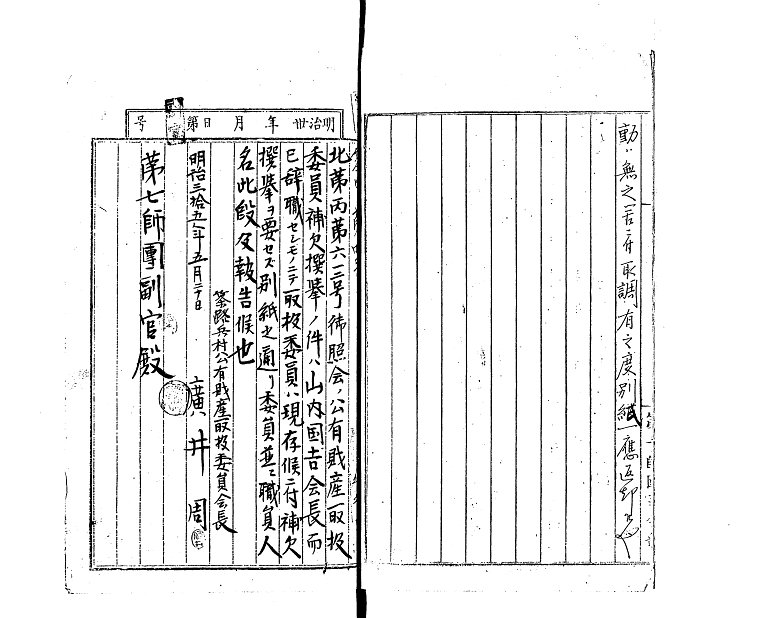 動ハ無之筈ニ付取調有之度別紙一應返却
明治卅年月日第号
北第丙第六一三号御照会ノ公有財産取扱
委員補欠撰挙ノ件ハ山内国吉会長而
已辞職セシモノニテ取扱委員ハ現存候ニ付補欠
撰挙ヲ要セズ別紙之通リ委員並ニ職員人
名此段及報告候也
兵村公有財産取扱委員会長
明治三拾五年五月二十日 廣井周
第七師團副官殿